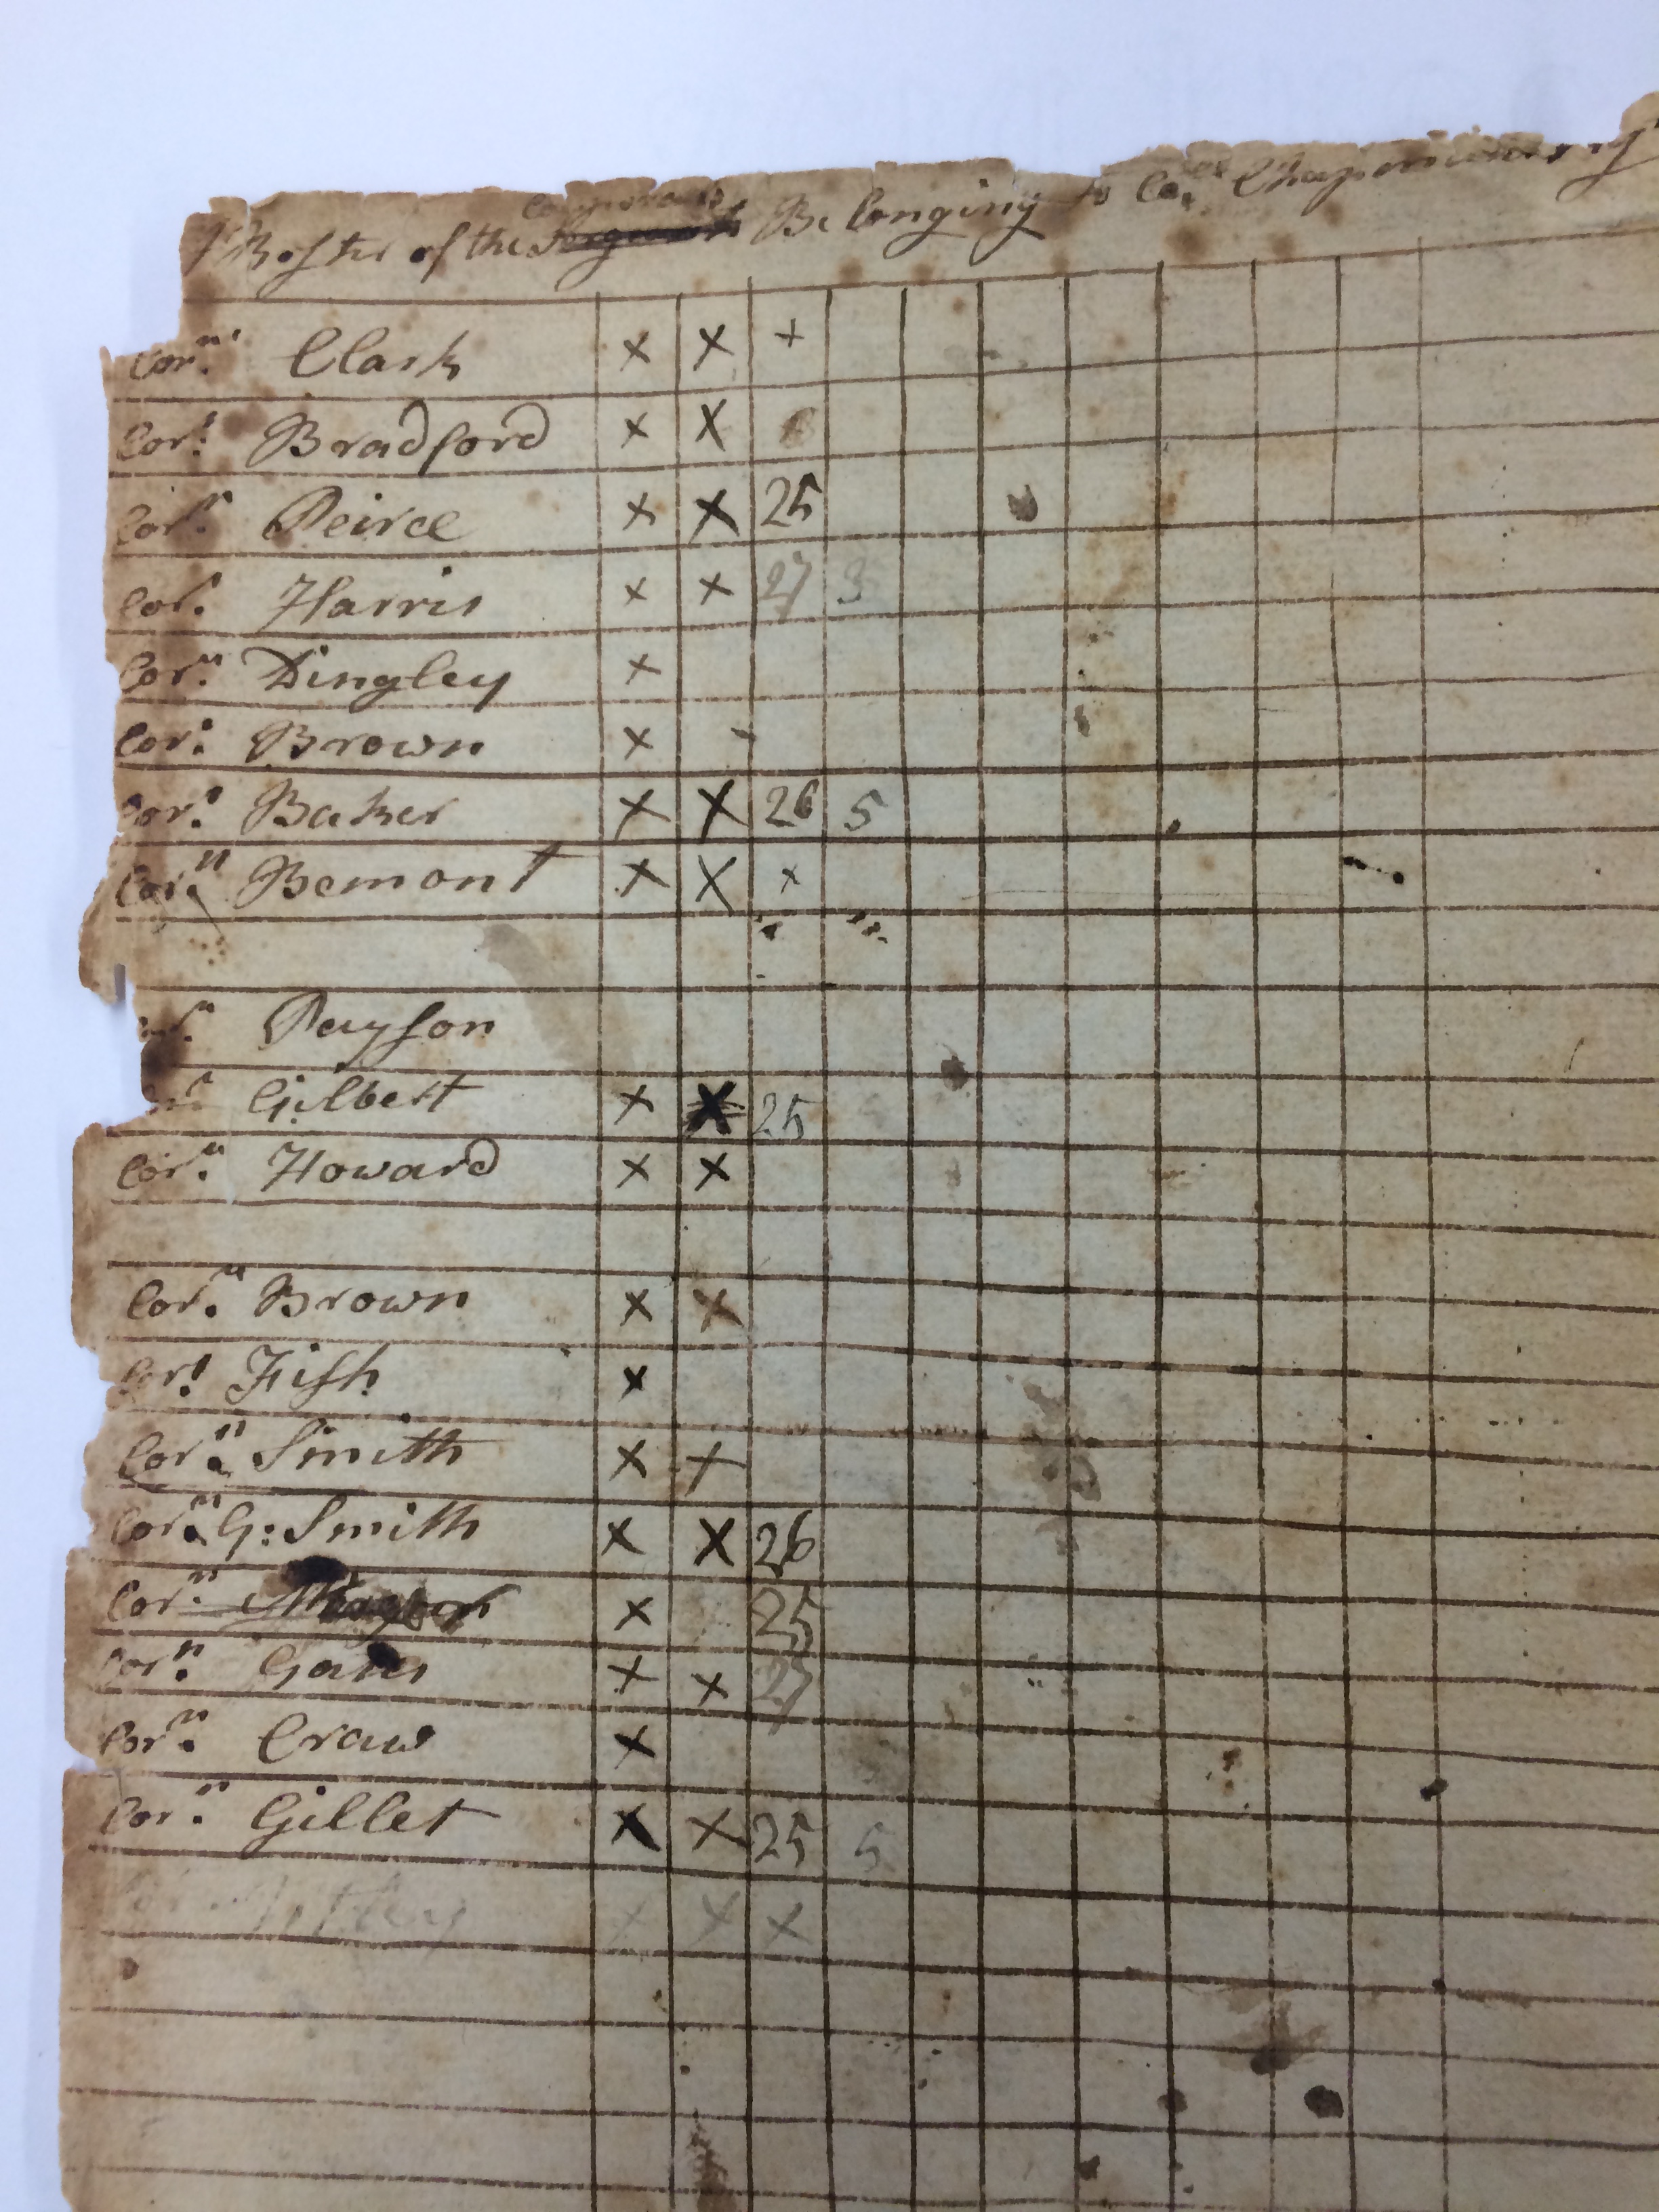 corporals
Roster of the Sergeants Belonging to Col. Chapmans
Cor.n Clark × × ×
Cor.l Bradford × ×
Cor.l Peirce × × 25
Cor.l Harris × × 27 3
Cor.n Dingley ×
Cor.l Brown ×
Cor.l Baker × × 26 5
Cor.n Bemont × × ×
Payson
Gilbert × × 25
Cor.n Howard × ×
Cor.n Brown × ×
Cor.l Fish ×
Cor.n Smith × ×
Cor.n G: Smith × × 26
Cor.n × 25
Cor.n × × 27
Cor.n Craw ×
Cor.n Gillet × × 25 5
× × ×